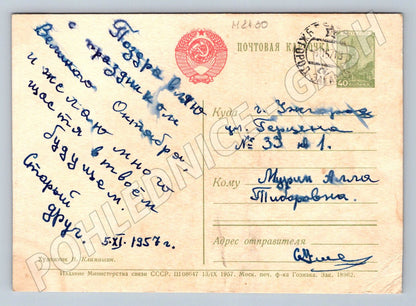 M2400
ПОЧТОВАЯ КАРТОЧКА
УЖГОРОД
40
Поздравляю
с праздником
Великого Октября
и желаю много
счастя в твоём
будущем.
Старый
друг.
5-XI. 1957 г.
Куда г. Ужгород
ул. Герцена
№ 33 д 1.
Кому Мурин Алла
Тиборовна.
Адрес отправителя
Художник В. Климашин.
Издание Министерства связи СССР. Ш08647 13/IX 1957. Мнск. печ. ф-ка Гознака. Зак.
POHLEDNICE-CASH